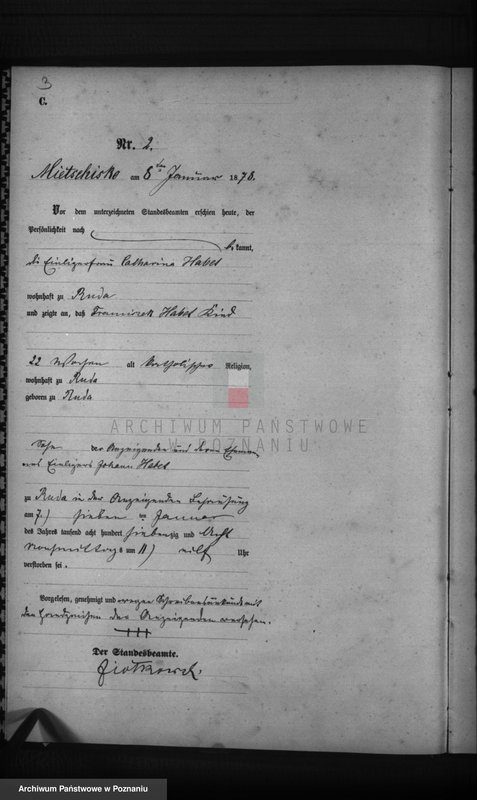 3
C.
Nr. 2.
Mietschisko am 8ten Januar 1878.
Vor dem unterzeichneten Standesbeamten erschien heute, der
Persönlichkeit nach
bekannt,
die Einliegerfrau Catharina Habet
wohnhaft zu Ruda
und zeigte an, daß Franciszek Habet Kind
22 Wochen alt katholischer Religion,
wohnhaft zu Ruda
geboren zu Ruda
ARCHIWUM PAŃSTWOWE
W POZNANIU
Sohn der Anzeigenden und deren Ehemannes
Einliegers Johann Habet
zu Ruda in der Anzeigenden Behausung
am 7) sieben ten Januar
des Jahres tausend acht hundert siebenzig und Acht
Vormittags um 11) eilf Uhr
verstorben sei.
Vorgelesen, genehmigt und wegen Schreibensunkunde mit
den Handzeichen der Anzeigenden versehen.
+++
Der Standesbeamte.
Archiwum Państwowe w Poznaniu